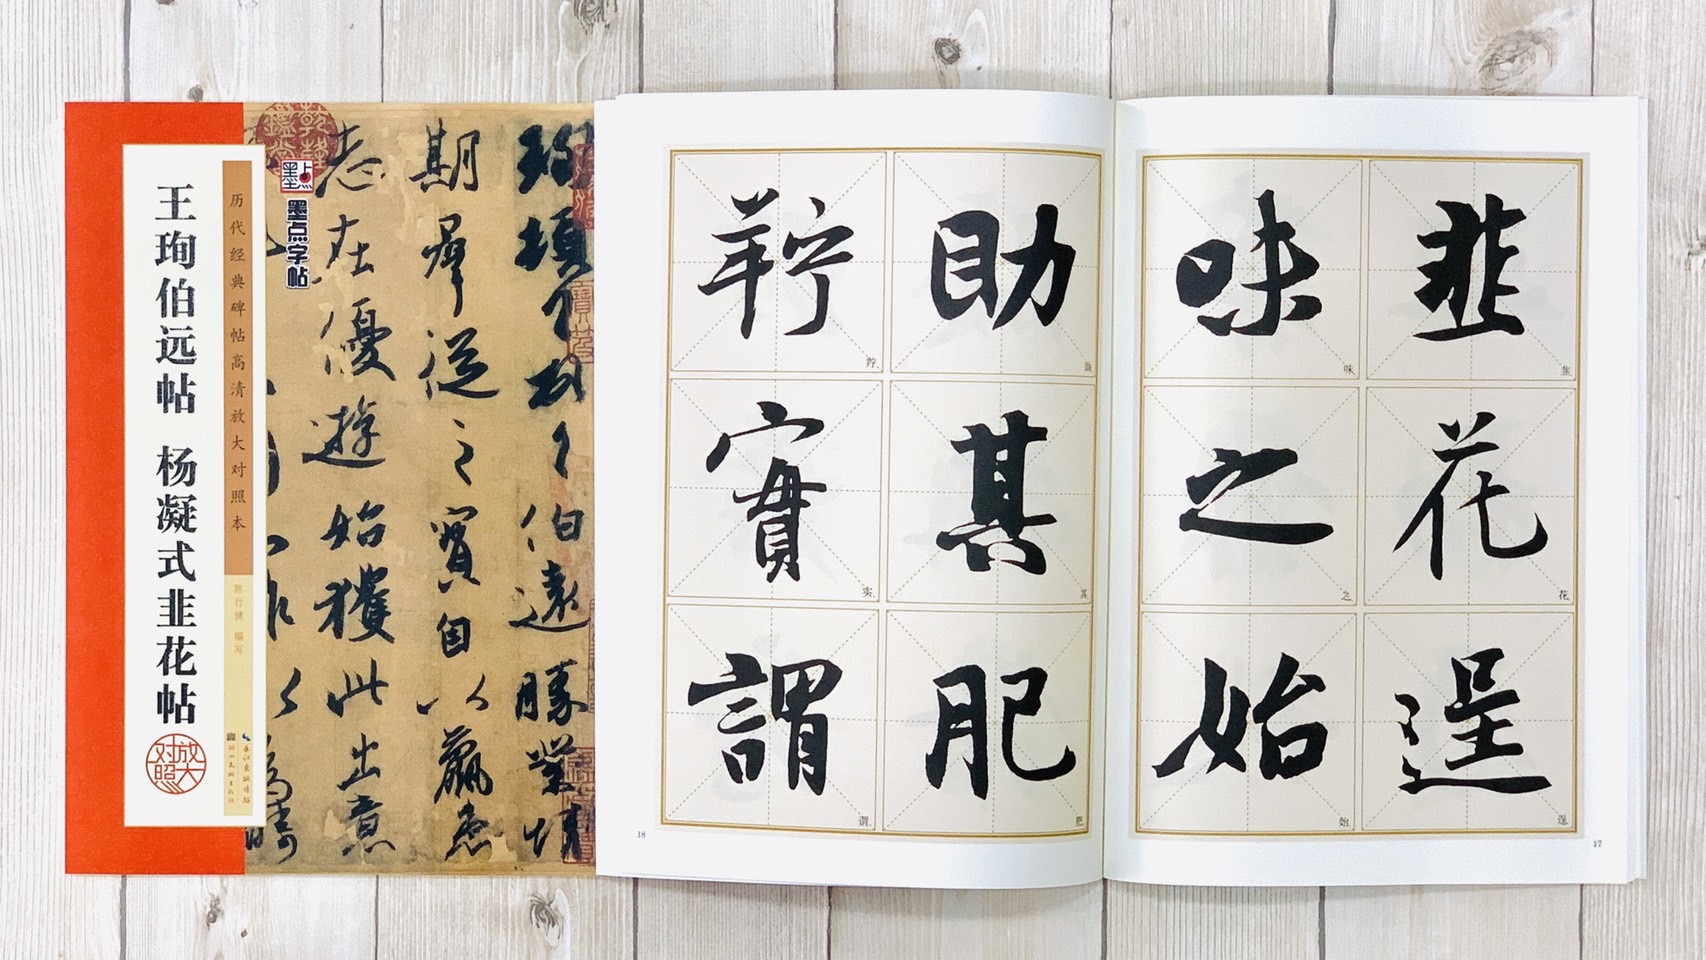 王珣伯远帖 杨凝式韭花帖
放大对照
历代经典碑帖高清放大对照本
陈行健 编写
长江出版传媒
湖北美术出版社
墨点
墨点字帖
珣頓首頓首伯遠勝業情
期羣從之寶自以羸患
志在優遊始獲此出意
韭花逞
韭
花
逞
味之始
味
之
始
17
助其肥
助
其
肥
羜實謂
实
谓
18